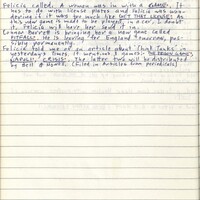 Felicia called. A woman was in with a GAME. It
has to do with license plates and Felicia was won-
dering if it was too much like GET THAT LICENSE! As
this new game is made to be played in a car, I doubt
it. Felicia will have her send it in.
Connor Barrett is bringing her a new game called
He is leaving for England tomorrow, pos-
sibly permanently.
Felicia told me of an article about "Think Tanks" in
yesterday's Times. It mentions 2 games:
NAPOLI, CRISIS. The latter two will be distributed
by (Filed in Articles from periodicals)